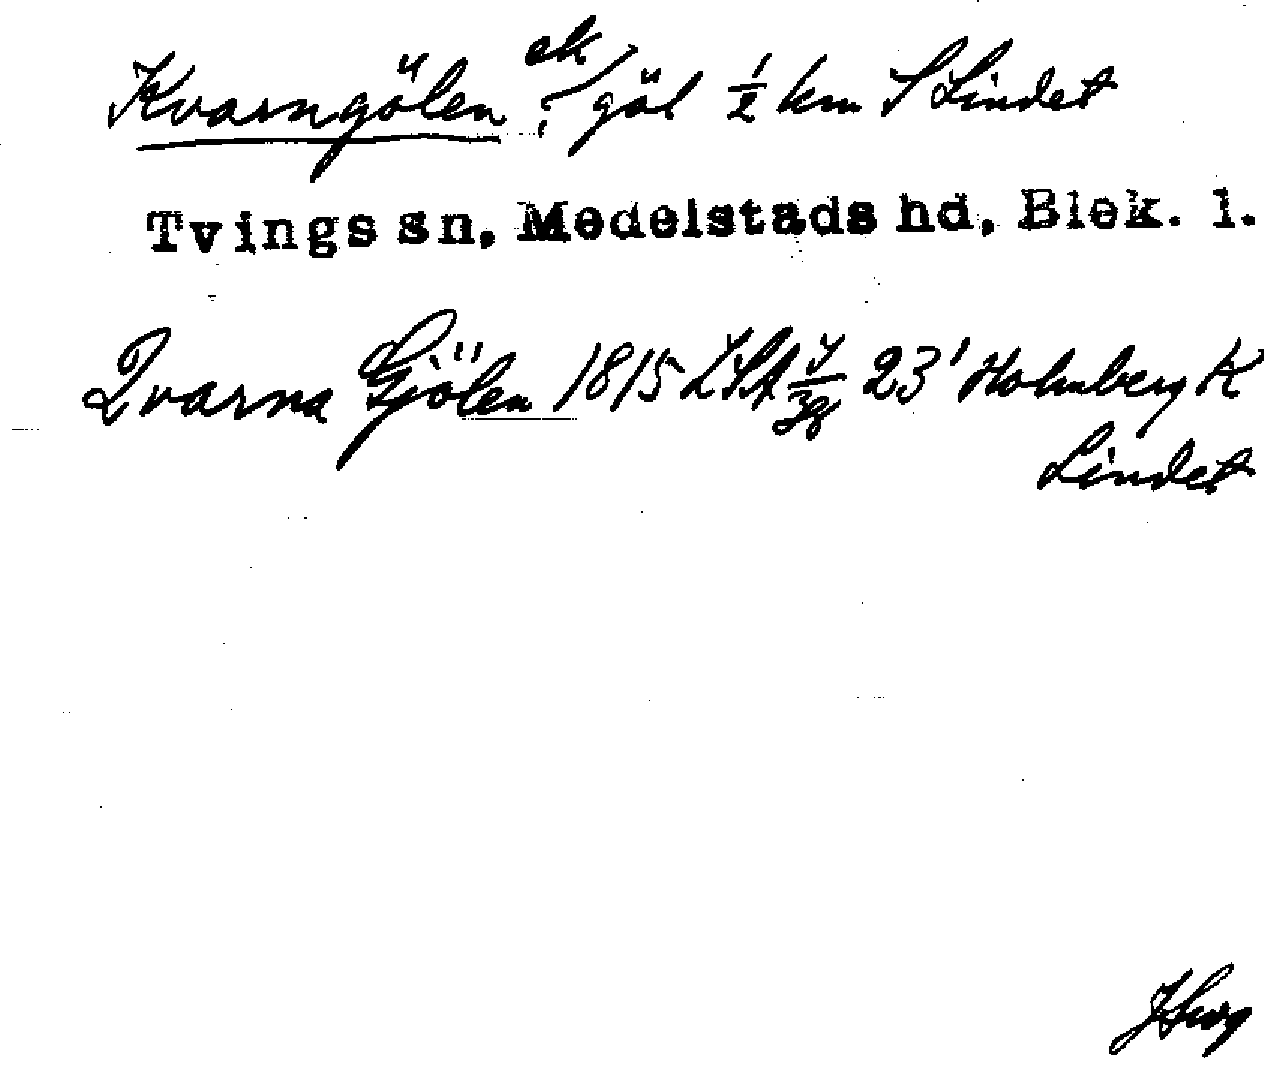 Kvarngölen ek/göl ½ km S Lindet
Tvings sn, Medelstads hd, Blek. l.
Qvarna Gjölen 1815 LSA 23' Holmberg K
Lindet